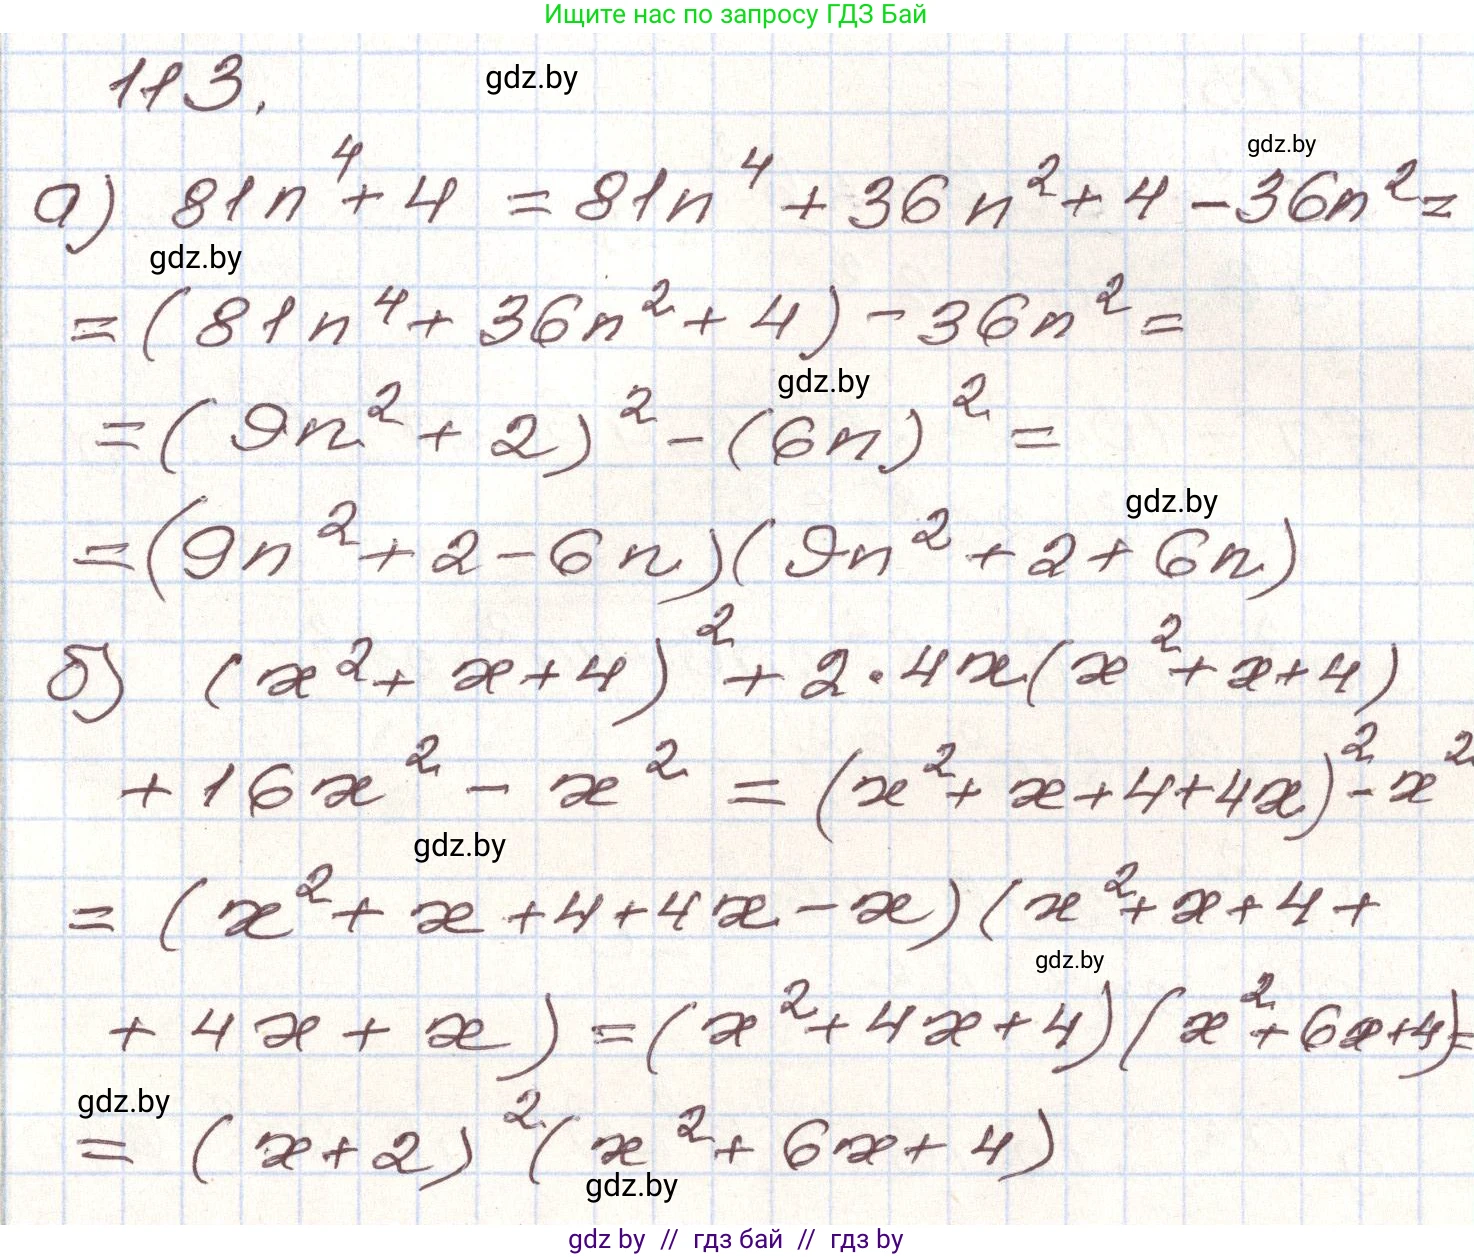 Ищите нас по запросу ГДЗ Бай
113.
gdz.by
gdz.by
а) 81n⁴ + 4 = 81n⁴ + 36n² + 4 - 36n² =
gdz.by
= (81n⁴ + 36n² + 4) - 36n² =
gdz.by
= (9n² + 2)² - (6n)² =
gdz.by
= (9n² + 2 - 6n)(9n² + 2 + 6n)
б) (x² + x + 4)² + 2 · 4x(x² + x + 4)
+ 16x² - x² = (x² + x + 4 + 4x)² - x²
gdz.by
= (x² + x + 4 + 4x - x)(x² + x + 4 +
gdz.by
+ 4x + x) = (x² + 4x + 4)(x² + 6x + 4) =
gdz.by
= (x + 2)²(x² + 6x + 4)
gdz.by
gdz by // гдз бай // гдз by